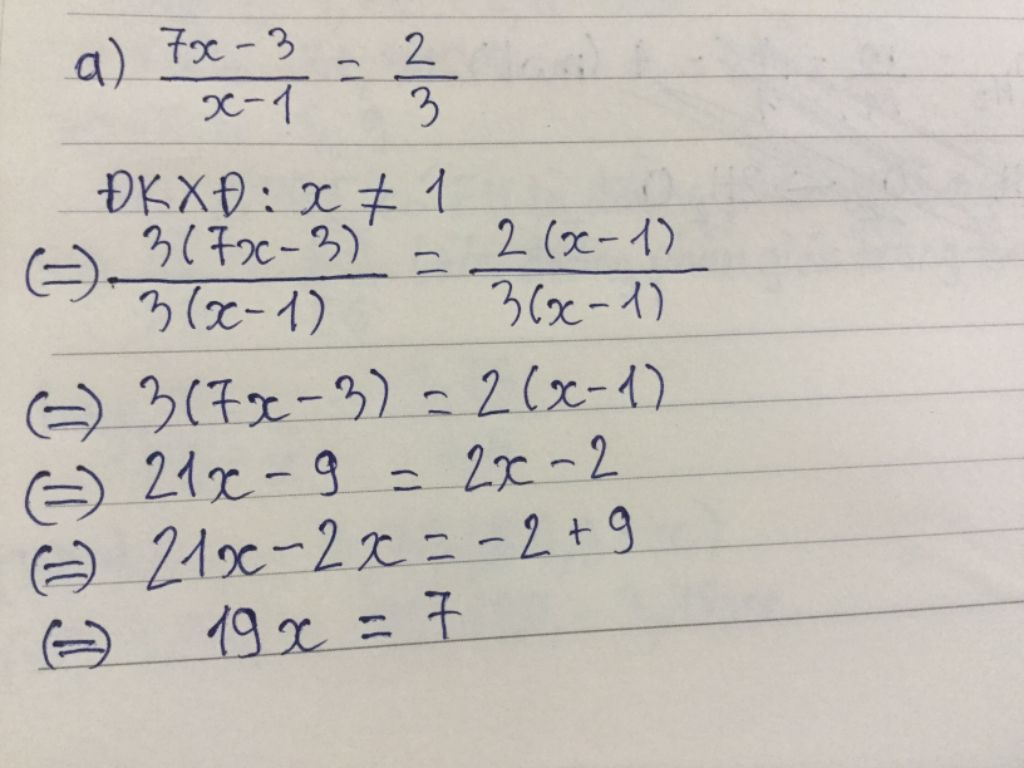 a) \frac{7x - 3}{x - 1} = \frac{2}{3}
ĐKXĐ: x ≠ 1
(=) \frac{3(7x - 3)}{3(x - 1)} = \frac{2(x - 1)}{3(x - 1)}
(=) 3(7x - 3) = 2(x - 1)
(=) 21x - 9 = 2x - 2
(=) 21x - 2x = -2 + 9
(=) 19x = 7